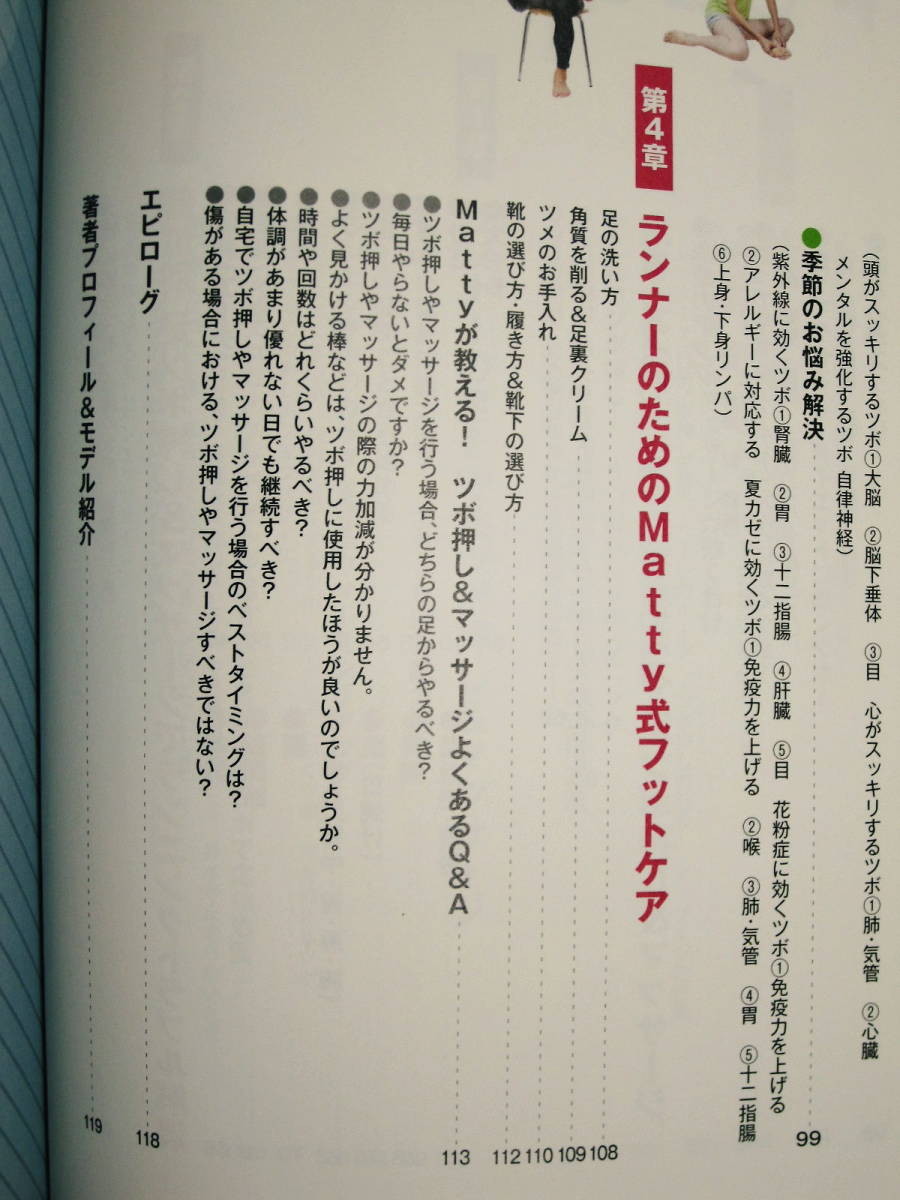 (頭がスッキリするツボ①大脳 ②脳下垂体 ③目 心がスッキリするツボ①肺・気管 ②心臓
メンタルを強化するツボ 自律神経)
●季節のお悩み解決 99
(紫外線に効くツボ①腎臓 ②胃 ③十二指腸 ④肝臓 ⑤目 花粉症に効くツボ①免疫力を上げる
②アレルギーに対応する 夏カゼに効くツボ①免疫力を上げる ②喉 ③肺・気管 ④胃 ⑤十二指腸
⑥上身・下身リンパ)
第4章 ランナーのためのMatty式フットケア
足の洗い方 108
角質を削る&足裏クリーム 109
ツメのお手入れ 110
靴の選び方・履き方&靴下の選び方 112
Mattyが教える! ツボ押し&マッサージよくあるQ&A 113
●ツボ押しやマッサージを行う場合、どちらの足からやるべき?
●毎日やらないとダメですか?
●ツボ押しやマッサージの際の力加減が分かりません。
●よく見かける棒などは、ツボ押しに使用したほうが良いのでしょうか。
●時間や回数はどれくらいやるべき?
●体調があまり優れない日でも継続すべき?
●自宅でツボ押しやマッサージを行う場合のベストタイミングは?
●傷がある場合における、ツボ押しやマッサージすべきではない?
エピローグ 118
著者プロフィール&モデル紹介 119